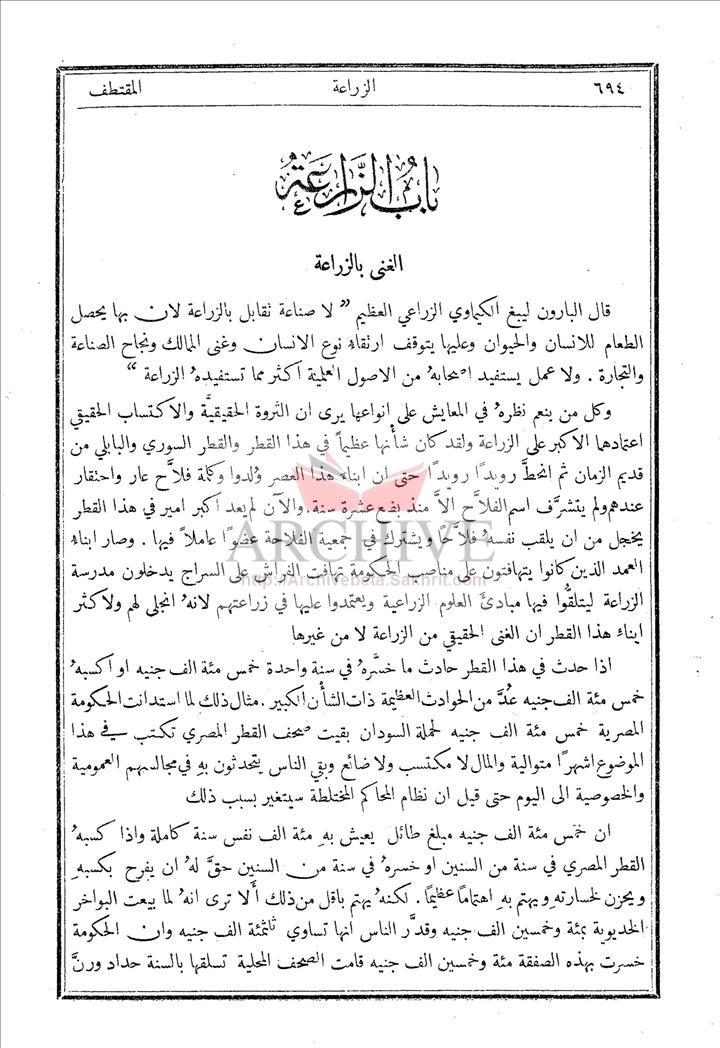 ٦٩٤ الزراعة المقتطف
باب الزراعة
الغنى بالزراعة
قال البارون ليبغ الكيماوي الزراعي العظيم " لا صناعة تقابل بالزراعة لان بها يحصل
الطعام للانسان والحيوان وعليها يتوقف ارتقاء نوع الانسان وغنى المالك ونجاح الصناعة
والتجارة . ولا عمل يستفيد اصحابهُ من الاصول العلمية اكثر مما تستفيدهُ الزراعة "
وكل من ينعم نظرهُ في المعايش على انواعها يرى ان الثروة الحقيقيَّة والاكتساب الحقيقي
اعتمادهما الاكبر على الزراعة ولقد كان شأنها عظيماً في هذا القطر والقطر السوري والبابلي من
قديم الزمان ثم انحطَّ رويدًا رويدًا حتى ان ابناء هذا العصر وُلدوا وكلمة فلاَّح عار واحتقار
عندهم ولم يتشرَّف اسم الفلاَّح الاَّ منذ بضع عشرة سنة . والآن لم يعد اكبر امير في هذا القطر
يخجل من ان يلقب نفسهُ فلاَّحًا ويشترك في جمعية الفلاحة عضوًا عاملاً فيها . وصار ابناءُ
العمد الذين كانوا يتهافتون على مناصب الحكومة تهافت الفراش على السراج يدخلون مدرسة
الزراعة ليتلقُّوا فيها مبادئَ العلوم الزراعية ويعتمدوا عليها في زراعتهم لانهُ انجلى لهم ولاكثر
ابناء هذا القطر ان الغنى الحقيقي من الزراعة لا من غيرها
اذا حدث في هذا القطر حادث ما خسَّرهُ في سنة واحدة خمس مئة الف جنيه او اكسبهُ
خمس مئة الف جنيه عُدَّ من الحوادث العظيمة ذات الشأن الكبير . مثال ذلك لما استدانت الحكومة
المصرية خمس مئة الف جنيه لحملة السودان بقيت صحف القطر المصري تكتب في هذا
الموضوع اشهرًا متوالية والمال لا مكتسب ولا ضائع وبقي الناس يتحدثون بهِ في مجالسهم العمومية
والخصوصية الى اليوم حتى قيل ان نظام المحاكم المختلطة سيتغير بسبب ذلك
ان خمس مئة الف جنيه مبلغ طائل يعيش بهِ مئة الف نفس سنة كاملة واذا كسبهُ
القطر المصري في سنة من السنين او خسرهُ في سنة من السنين حقَّ لهُ ان يفرح بكسبهِ
ويحزن لخسارتهِ ويهتم بهِ اهتماماً عظيماً . لكنهُ يهتم باقل من ذلك أَلا ترى انهُ لما بيعت البواخر
الخديوية بمئة وخمسين الف جنيه وقدَّر الناس انها تساوي ثلثمئة الف جنيه وان الحكومة
خسرت بهذه الصفقة مئة وخمسين الف جنيه قامت الصحف المحلية تسلقها بالسنة حداد ورنَّ
ARCHIVE
http://Archivebeta.Sakhrit.com